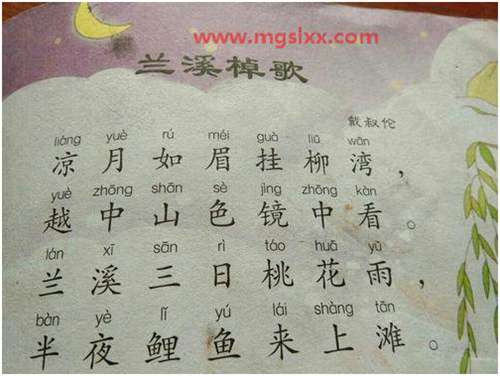 www.mgslxx.com
兰溪棹歌
戴叔伦
liáng yuè rú méi guà liǔ wān
凉月如眉挂柳湾，
yuè zhōng shān sè jìng zhōng kàn
越中山色镜中看。
lán xī sān rì táo huā yǔ
兰溪三日桃花雨，
bàn yè lǐ yú lái shàng tān
半夜鲤鱼来上滩。